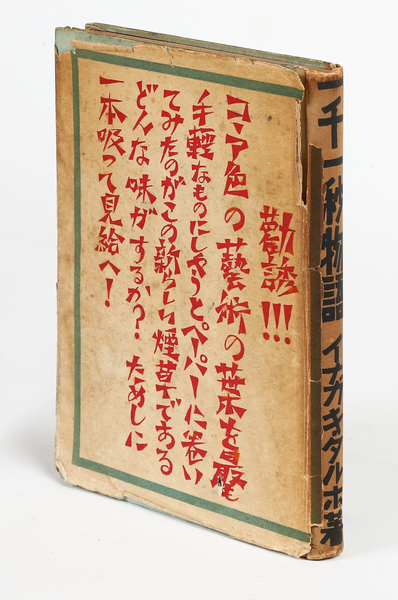 勸誘!!!
コヽア色の藝術の葉を最も
手輕なものにしやうとペーパーに卷い
てみたのがこの新らしい煙草である
どんな味がするか? ためしに
一本吸って見給へ!
一千一秒物語 イナガキタルホ著